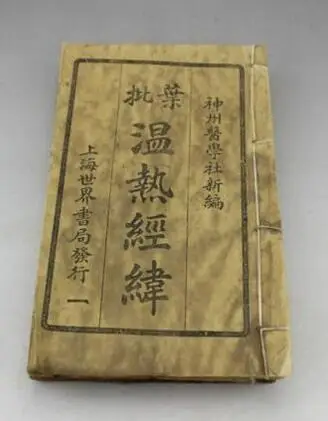 神州醫學社新編
葉批
溫熱經緯
上海世界書局發行
一